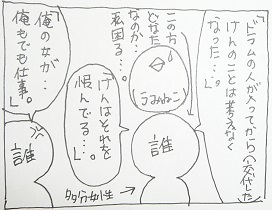 「ドラムの人が入ってから(交代した)
けんのことは考えなく
なった…。」
この方
どなた
なのか…
私困る…。
(うみねこ)
「けんはそれを
恨んでる…。」
誰
タダ分女性→
「俺の女が…
俺もでも仕事。」
誰